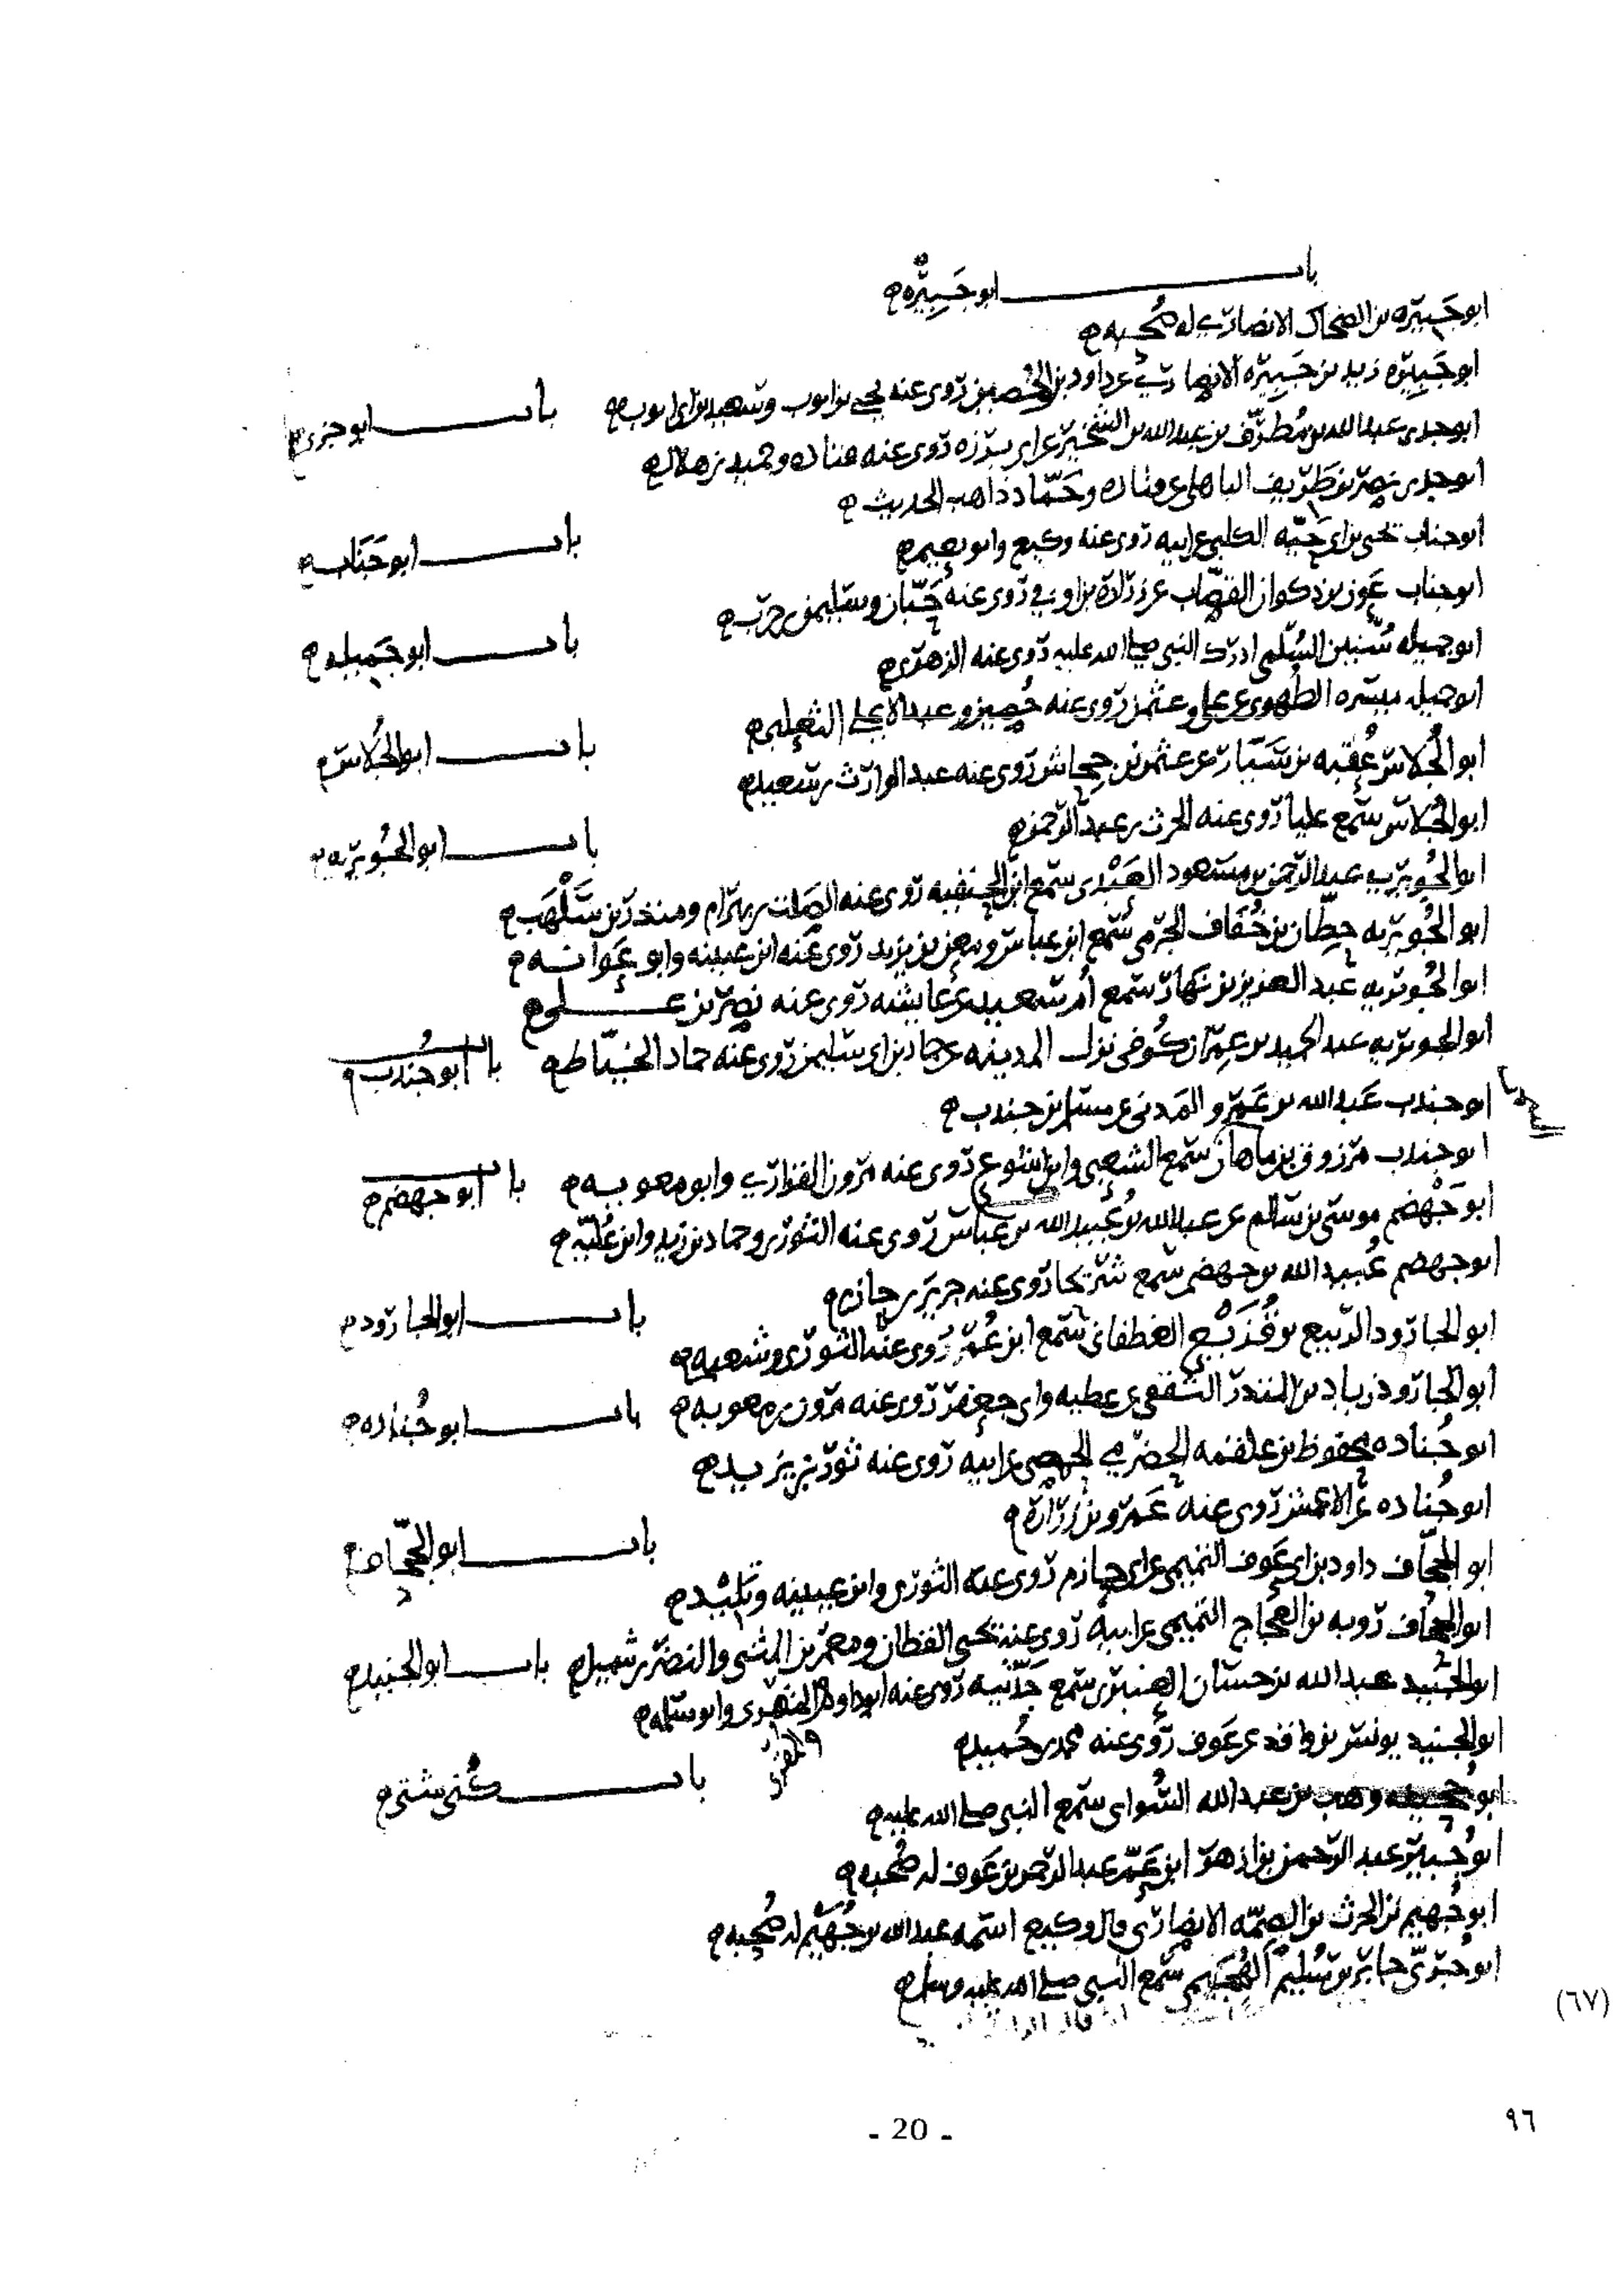 باب ابو جَبِيْرَه
ابو جَبِيره بن الضحاك الانصاري له صُحبه
ابو جَبِيره زيد بن جَبِيره الانصاري عن داود بن الحُصين روى عنه يحيى بن ايوب وسعيد بن ابي ايوب باب ابو جزي
ابو جزي عبد الله بن مُطرّف بن عبد الله بن الشخير عن ابي برزه روى عنه قتاده وحميد بن هلال
ابو جزي نصر بن طَريف الباهلي عن قتاده وحَمّاد ذاهب الحديث
باب ابو جَنَاب
ابو جناب يحيى بن ابي حَيّه الكلبي عن ابيه روى عنه وكيع وابو نعيم
ابو جناب عَون بن ذكوان القصّاب عن زرارة بن اوفى روى عنه حَبّان وسليمن بن حرب
باب ابو جَميله
ابو جميله سُنين السُلّمي ادرك النبي صلى الله عليه روى عنه الزهري
ابو جميله ميسره الطُهوي عن علي وعثمن روى عنه حُصين وعبد الاعلى الثعلبي
باب ابو الجُلاس
ابو الجُلاس عُقبه بن سَيّار عن عثمن بن جِحاش روى عنه عبد الوارث بن سعيد
ابو الجُلاس سمع عليا روى عنه الحرث بن عبد الرحمن
باب ابو الجُويريه
ابو الجُويريه عبد الرحمن بن مسعود العَبْدي سمع ابن الحنفيه روى عنه الصلت بن بهرام ومنذر بن سَلْهَب
ابو الجُويريه حِطّان بن خُفَاف الجرمي سمع ابن عباس ومعن بن يزيد روى عنه ابن عيينه وابو عَوانه
ابو الجُويريه عبد العزيز بن نهار سمع ام سعيد عن عايشه روى عنه نصر بن علي
ابو الجويريه عبد الحميد بن عِمران كُوفي نزل المدينه عن حماد بن ابي سليمن روى عنه حماد الخيّاط باب ابو جُندب
ابو جندب عَبد الله بن عَمرو المَدني عن مسلم بن جندب
ابو جندب مرزوق بن ماهان سمع الشعبي وابن اشوع روى عنه مرون الفزاري وابو معويه باب ابو جهضم
ابو جَهْضم موسى بن سالم عن عبد الله بن عُبيد الله بن عباس روى عنه الثوري وحماد بن زيد وابن عُليّه
ابو جهضم عُبيد الله بن جهضم سمع شريحا روى عنه جرير بن حازم
باب ابو الجارود
ابو الجارود الربيع بن قُذَيْع الغطفاني سمع ابن عُمر روى عنه الثوري وشعبه
ابو الجارود زياد بن المنذر الثقفي عن عطيه وابي جعفر روى عنه مرون بن معويه باب ابو جُناده
ابو جُناده محفوظ بن علقمه الحضرمي الحمصي عن ابيه روى عنه ثور بن يزيد
ابو جُناده عن الاعمش روى عنه عَمرو بن زُرارة
باب ابو الجحّاف
ابو الجحّاف داود بن ابي عَوف التميمي عن ابي حازم روى عنه الثوري وابن عيينه وتَليْد
ابو الجحاف روبه بن العجاج التميمي عن ابيه روى عنه يحيى القطان ومعمر بن المثنى والنضر بن شميل باب ابو الجنيد
ابو الجُنيد عبد الله بن حسان العنبري سمع جَدّتيه روى عنه ابو داود وابو سلمه
ابو الجنيد يونس بن واقد عن عَوف روى عنه محمد بن حُميد
باب كُنى شتى
ابو جُحيفه وهب بن عبد الله السُواي سمع النبي صلى الله عليه
ابو جُبير عبد الرحمن بن ازهر ابن عَمّ عبد الرحمن بن عَوف له صُحبه
ابو جُهيم بن الحرث بن الصِمّه الانصاري قال وكيع اسمه عبد الله بن جُهَيْم له صُحبه
ابو جُرَيّ جابر بن سُليم الهُجَيمي سمع النبي صلى الله عليه وسلم
(٦٧)
- 20 -
٩٦